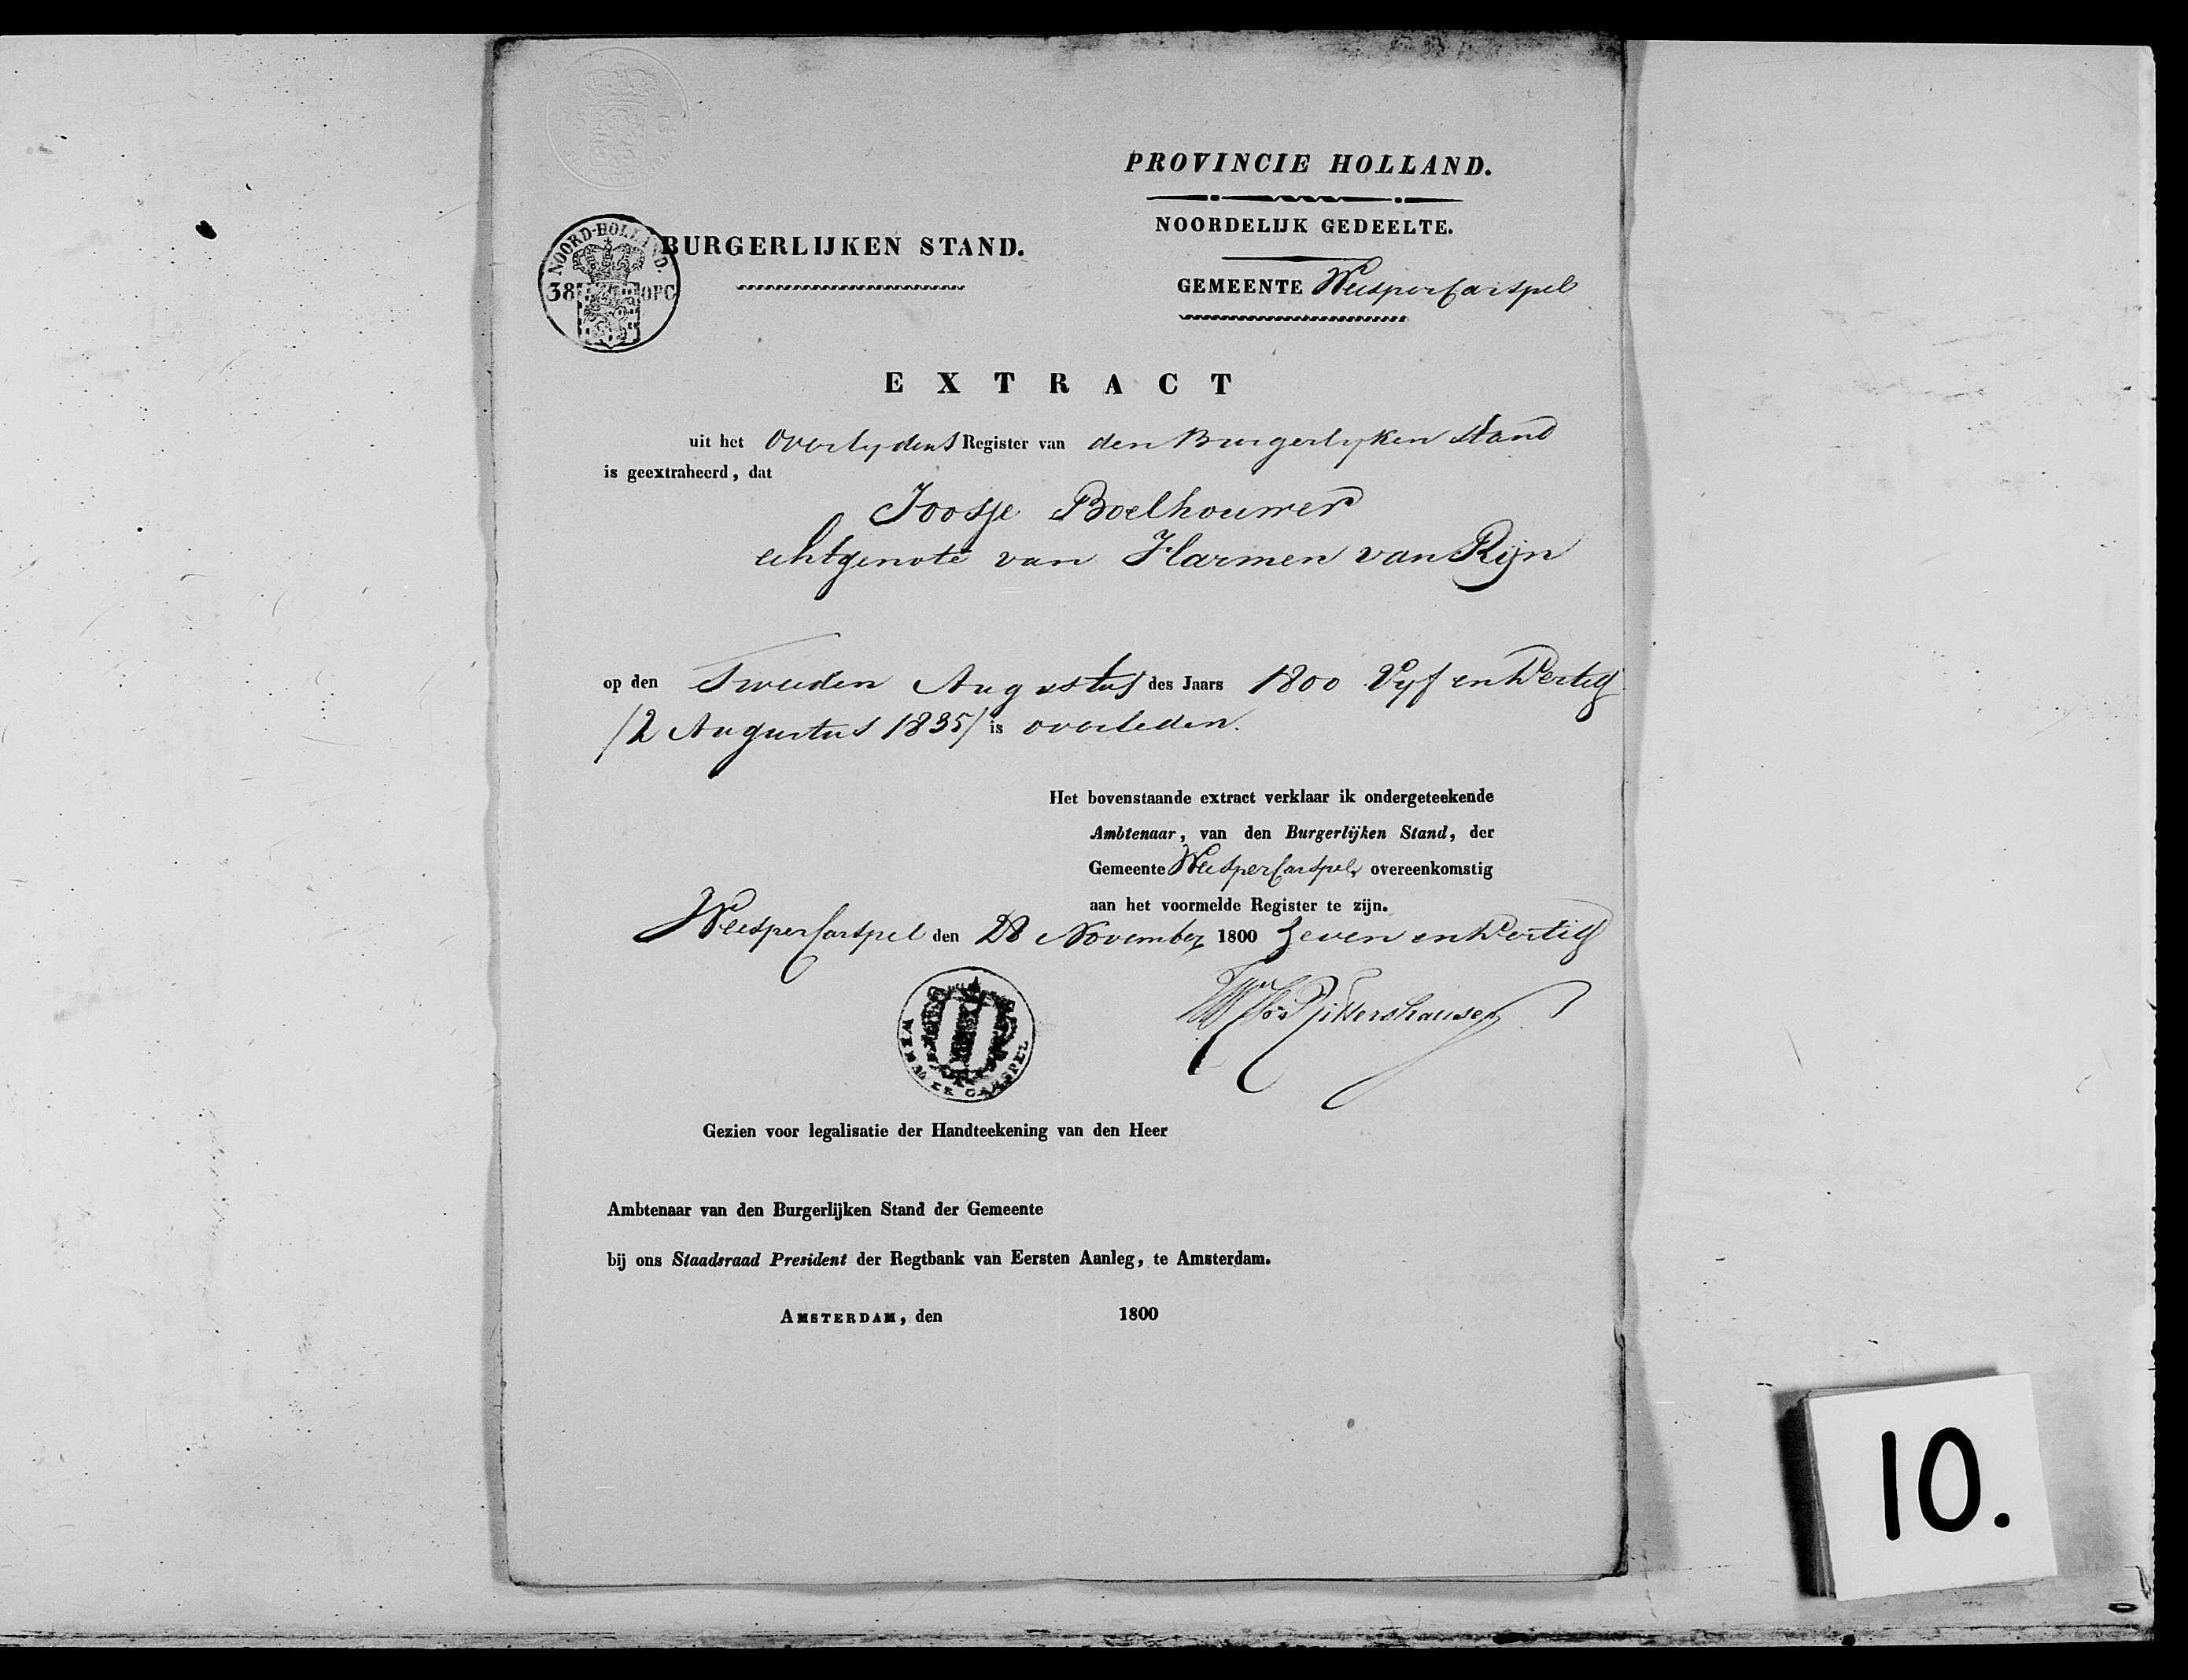 PROVINCIE HOLLAND.
NOORDELIJK GEDEELTE.
GEMEENTE Weespercarspel
NOORD-HOLLAND.
38 OPC
BURGERLIJKEN STAND.
EXTRACT
uit het Overlydens Register van den Burgerlyken Stand
is geextraheerd, dat
Joosje Boelhouwer
echtgenote van Harmen van Rijn
op den Tweeden Augustus des Jaars 1800 Vyf en Dertig
/2 Augustus 1835/ is overleden.
Het bovenstaande extract verklaar ik ondergeteekende
Ambtenaar, van den Burgerlijken Stand, der
Gemeente Weespercarspel, overeenkomstig
aan het voormelde Register te zijn.
Weespercarspel den 28 November 1800 Zeven en Dertig
WEESPER CARSPEL
Gezien voor legalisatie der Handteekening van den Heer
Ambtenaar van den Burgerlijken Stand der Gemeente
bij ons Staadsraad President der Regtbank van Eersten Aanleg, te Amsterdam.
AMSTERDAM, den 1800
10.